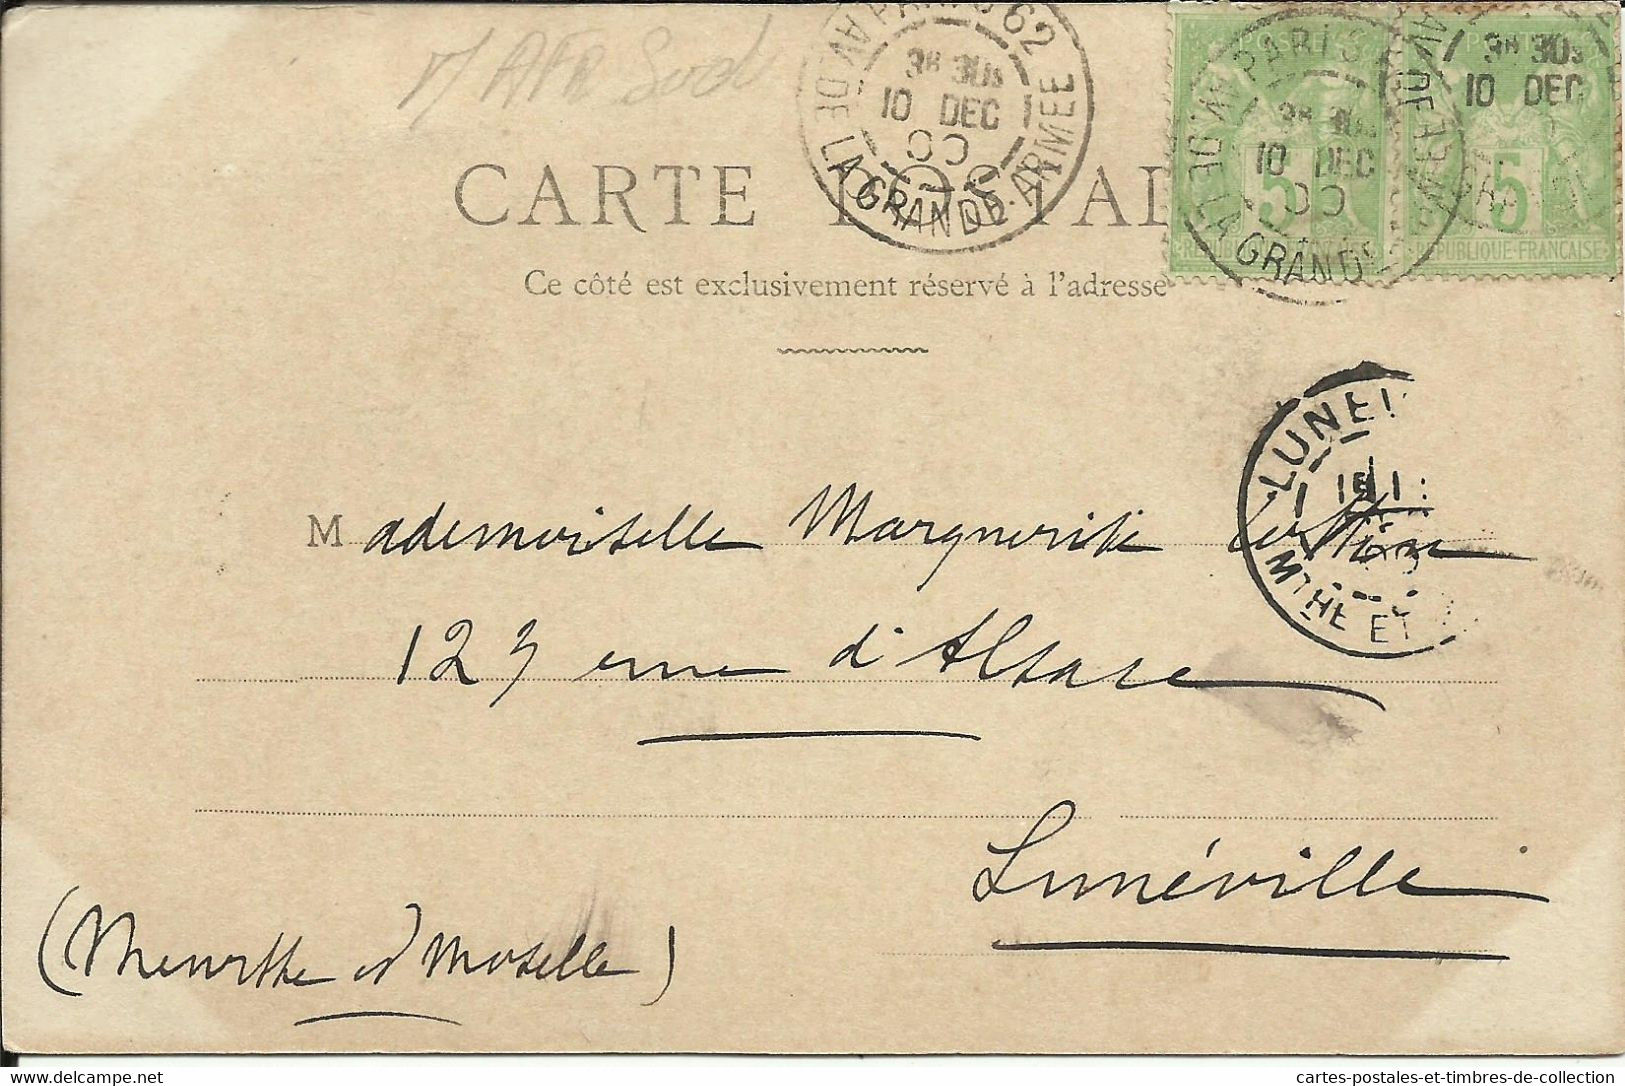 AFR Sud
PARIS 62
3H 30S
10 DEC
00
AV. DE LA GRANDE-ARMEE
PARIS
3H 30S
10 DEC
00
AV. DE LA GRANDE
3H 30S
10 DEC
5
5
REPUBLIQUE-FRANÇAISE
CARTE POSTAL
Ce côté est exclusivement réservé à l'adresse
LUNE
MTHE ET
Mademoiselle Marguerite
123 rue d'Alsace
Lunéville
(Meurthe et Moselle)
cartes-postales-et-timbres-de-collection